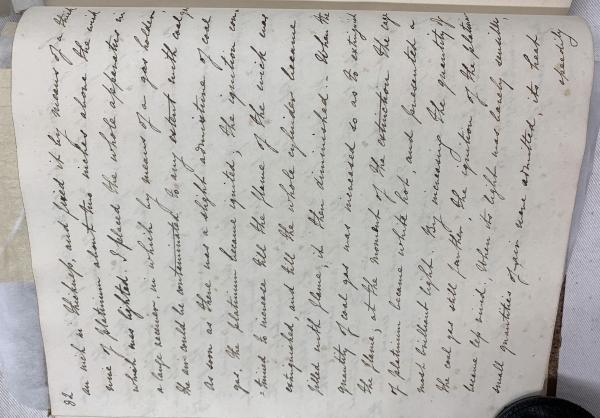 82
an inch in thickness, and fixed it by means of a thick
wire of platinum about two inches above the wick
which was lighted. I placed the whole apparatus in
a large receiver, in which by means of a gas holder,
the air could be contaminated to any extent with coal gas
as soon as there was a slight admixture of coal
gas, the platinum became ignited; the ignition con
=tinued to increase till the flame of the wick was
extinguished, and till the whole cylinder became
filled with flame; it then diminished. - When the
quantity of coal gas was increased so as to extinguish
the flame; at the moment of the extinction the cage
of platinum became white hot, and presented a
most brilliant light. By increasing the quantity of
the coal gas still farther, the ignition of the platina
became less vivid. When its light was barely sensible,
small quantities of air were admitted, its heat
speedily